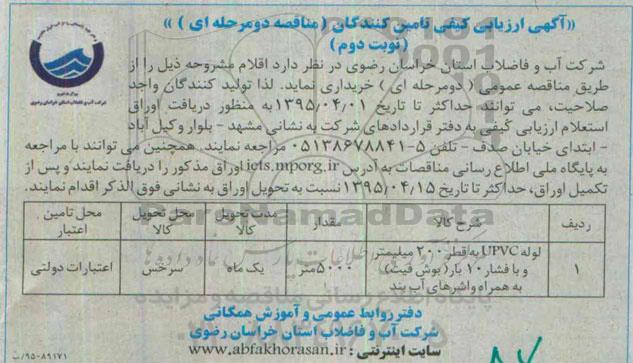 «آگهی ارزیابی کیفی تامین کنندگان ( مناقصه دومرحله ای ) »
(نوبت دوم)
شرکت آب و فاضلاب استان خراسان رضوی در نظر دارد اقلام مشروحه ذیل را از
طریق مناقصه عمومی ( دومرحله ای ) خریداری نماید. لذا تولید کنندگان واجد
صلاحیت، می توانند حداکثر تا تاریخ ۱۳۹۵/۰۴/۰۱ به منظور دریافت اوراق
استعلام ارزیابی کیفی به دفتر قراردادهای شرکت به نشانی مشهد - بلوار وکیل آباد
- ابتدای خیابان صدف - تلفن ۵-۰۵۱۳۸۶۷۸۸۴۱ مراجعه نمایند. همچنین می توانند با مراجعه
به پایگاه ملی اطلاع رسانی مناقصات به آدرس iets.mporg.ir اوراق مذکور را دریافت نمایند و پس از
تکمیل اوراق، حداکثر تا تاریخ ۱۳۹۵/۰۴/۱۵ نسبت به تحویل اوراق به نشانی فوق الذکر اقدام نمایند.
ردیف شرح کالا مقدار مدت تحویل کالا محل تحویل کالا محل تامین اعتبار
۱ لوله UPVC به قطر ۲۰۰ میلیمتر و با فشار ۱۰ بار( پوش فیت) به همراه واشرهای آب بند ۵۰۰۰ متر یک ماه سرخس اعتبارات دولتی
دفتر روابط عمومی و آموزش همگانی
شرکت آب و فاضلاب استان خراسان رضوی
سایت اینترنتی : www.abfakhorasan.ir
۹۵۰۸۹۱۷۱/ب
ParsNamadData